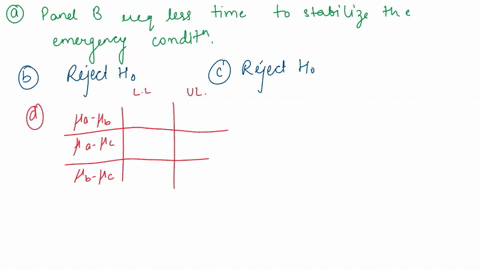 (a) Panel B req less time to stabilize the
emergency conditn.
(b) Reject Ho (c) Reject Ho
L.L UL.
(d) μa-μb
μa-μc
μb-μc